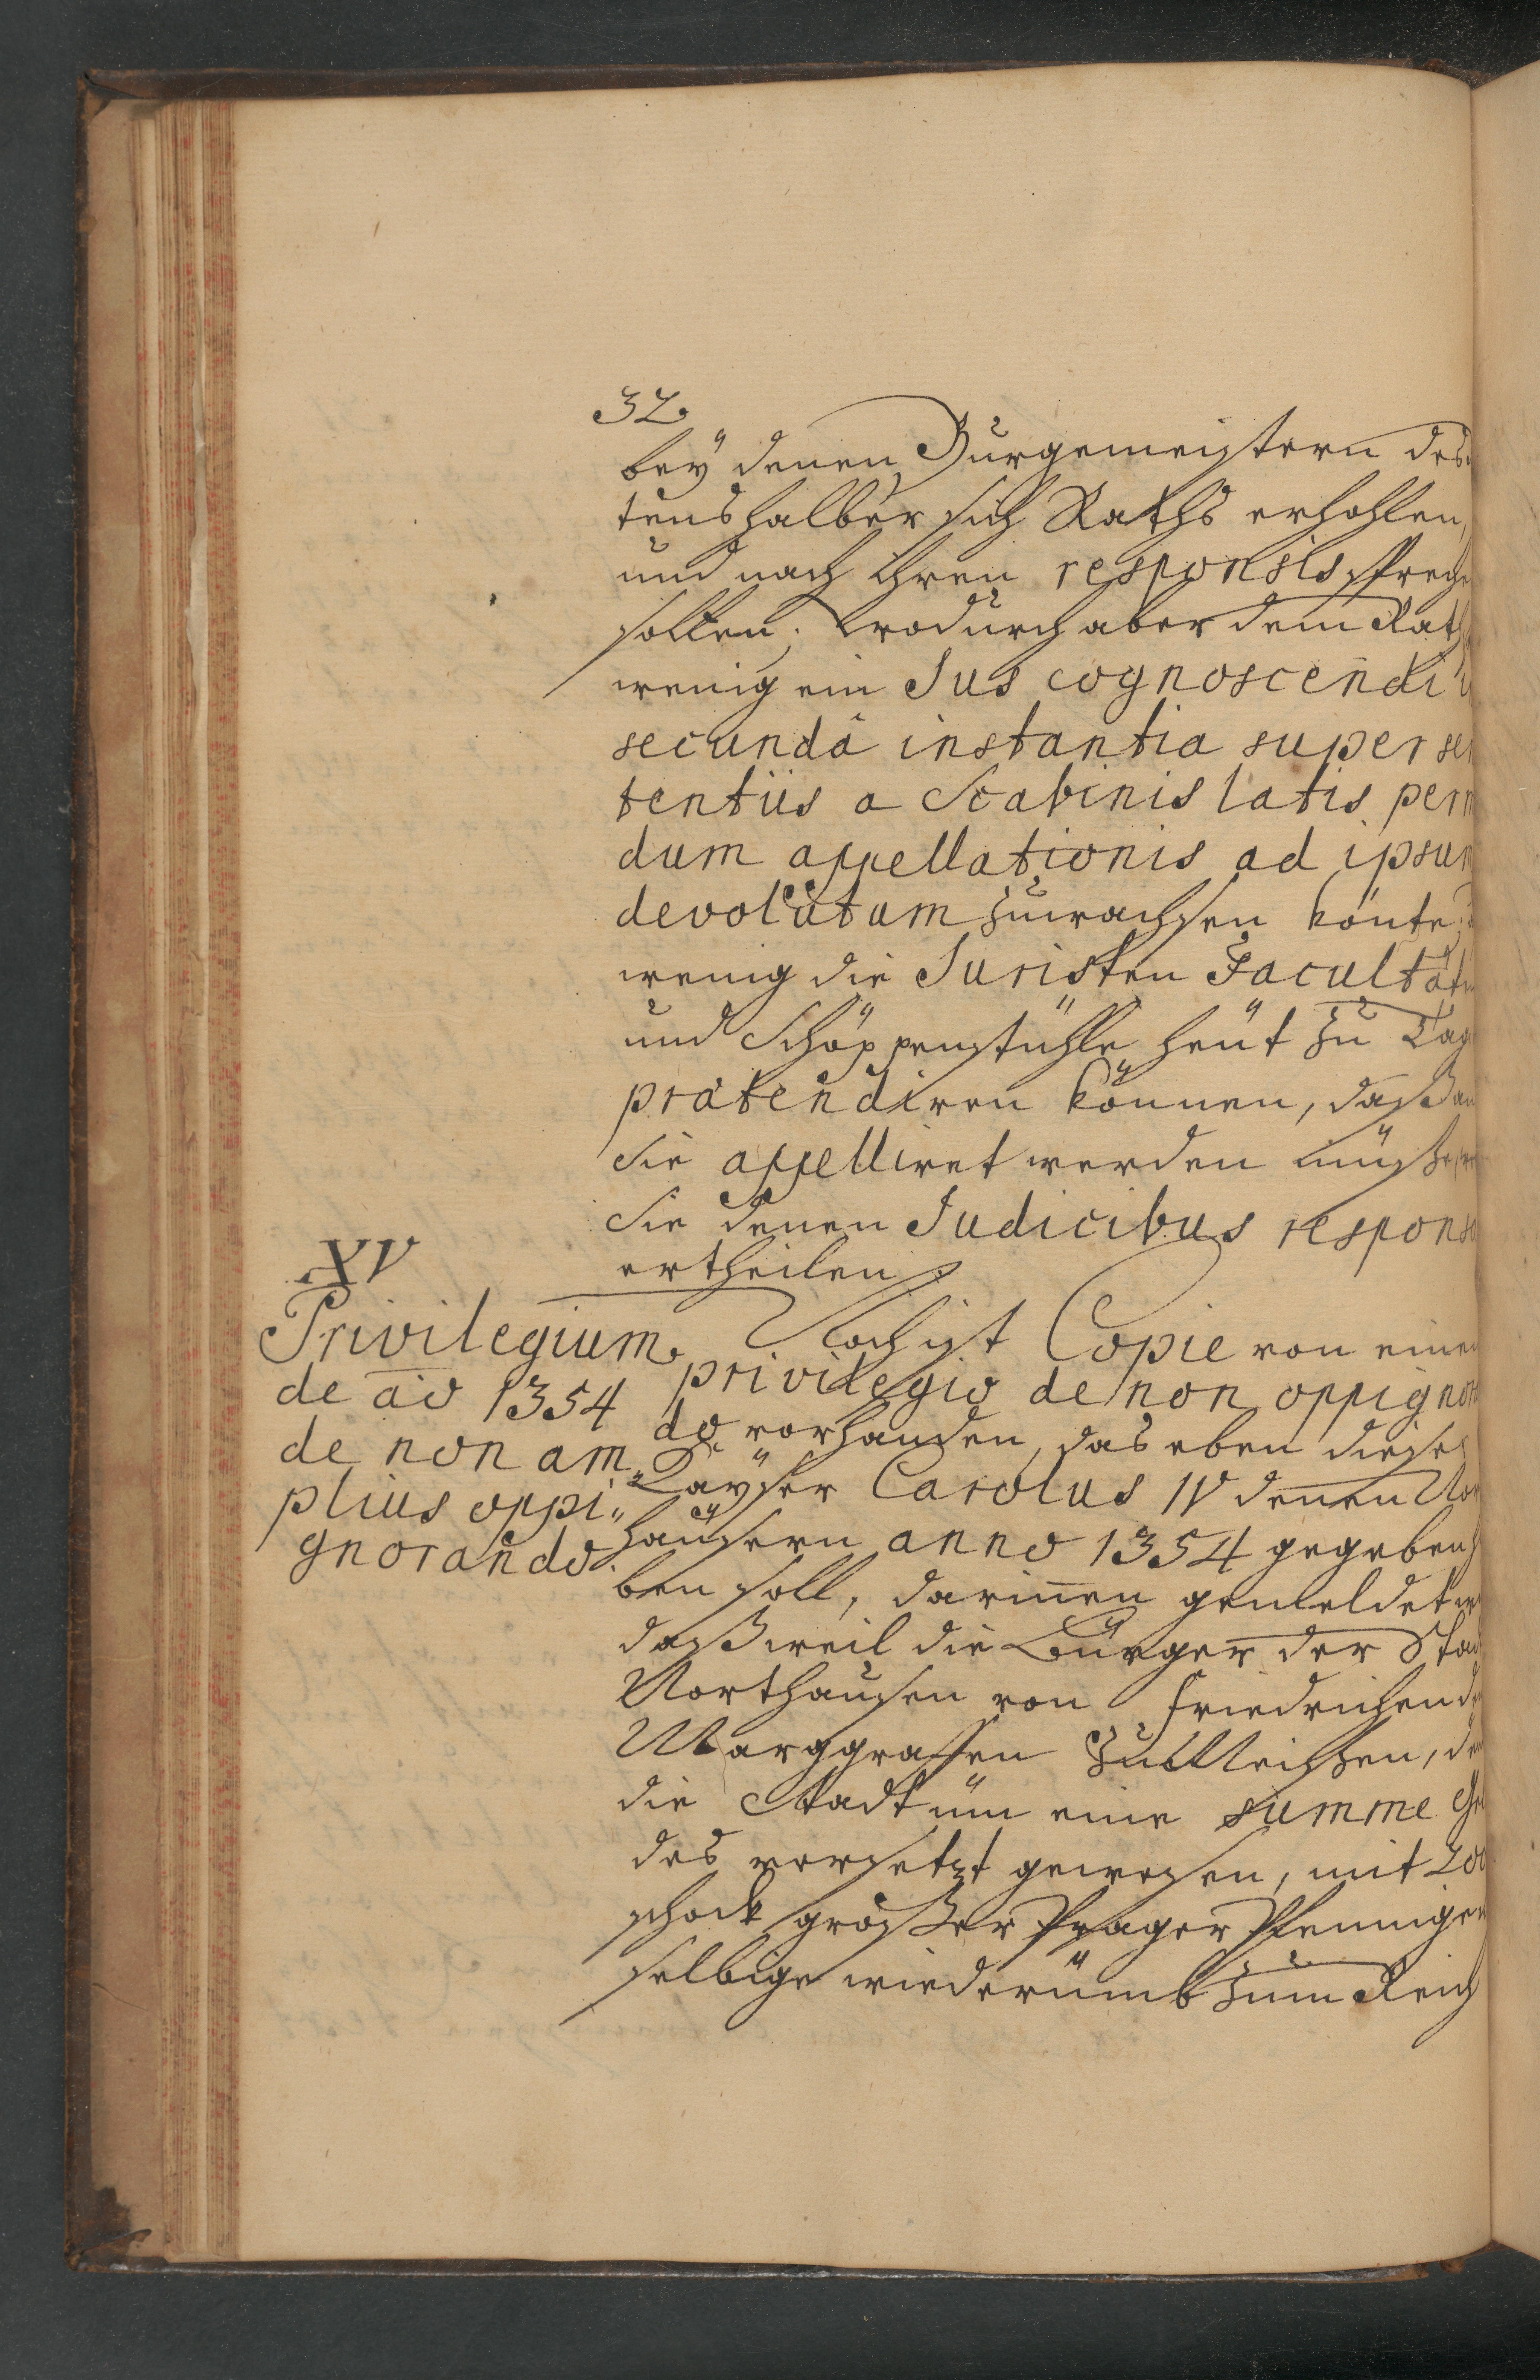 32.
beÿ denen Burgemeistern des
tenshalber sich Raths erhohlen,
und nach ihren responsis spreche
solten; Wodurch aber dem Rath
wenig ein Jus cognoscendi
secundâ instantia super sen
tentiis a Scabinis latis per m
dum appellationis ad ipsum
devolutum zuwachsen könte,
wenig die Juristen Facultät
und Schöppenstühle heüt zu Tag
prätendiren können, daß an
sie appelliret werden müße,
sie denen Judicibus respons
ertheilen.
XV
Privilegium
de aō 1354
de non am„
plius oppi„
gnorando
Noch ist Copie von einem
privilegio de non oppignor
do vorhanden, das eben dieser
Kaÿser Carolus IV denen Nor
häusern anno 1354 gegeben h
ben soll, darin̄en gemeldet w
daß weil die Bürger der Stad
Northausen von Friedrichen d
Marggraffen zu Meißen, de
die Stadt üm eine summe Ge
des versetzt gewesen, mit 200
schock großer Prager Pfennige
selbige wiederümb zum Reich